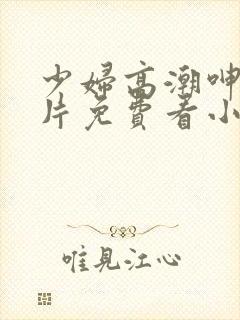 少婦高潮呻
片免費看小
唯見江心